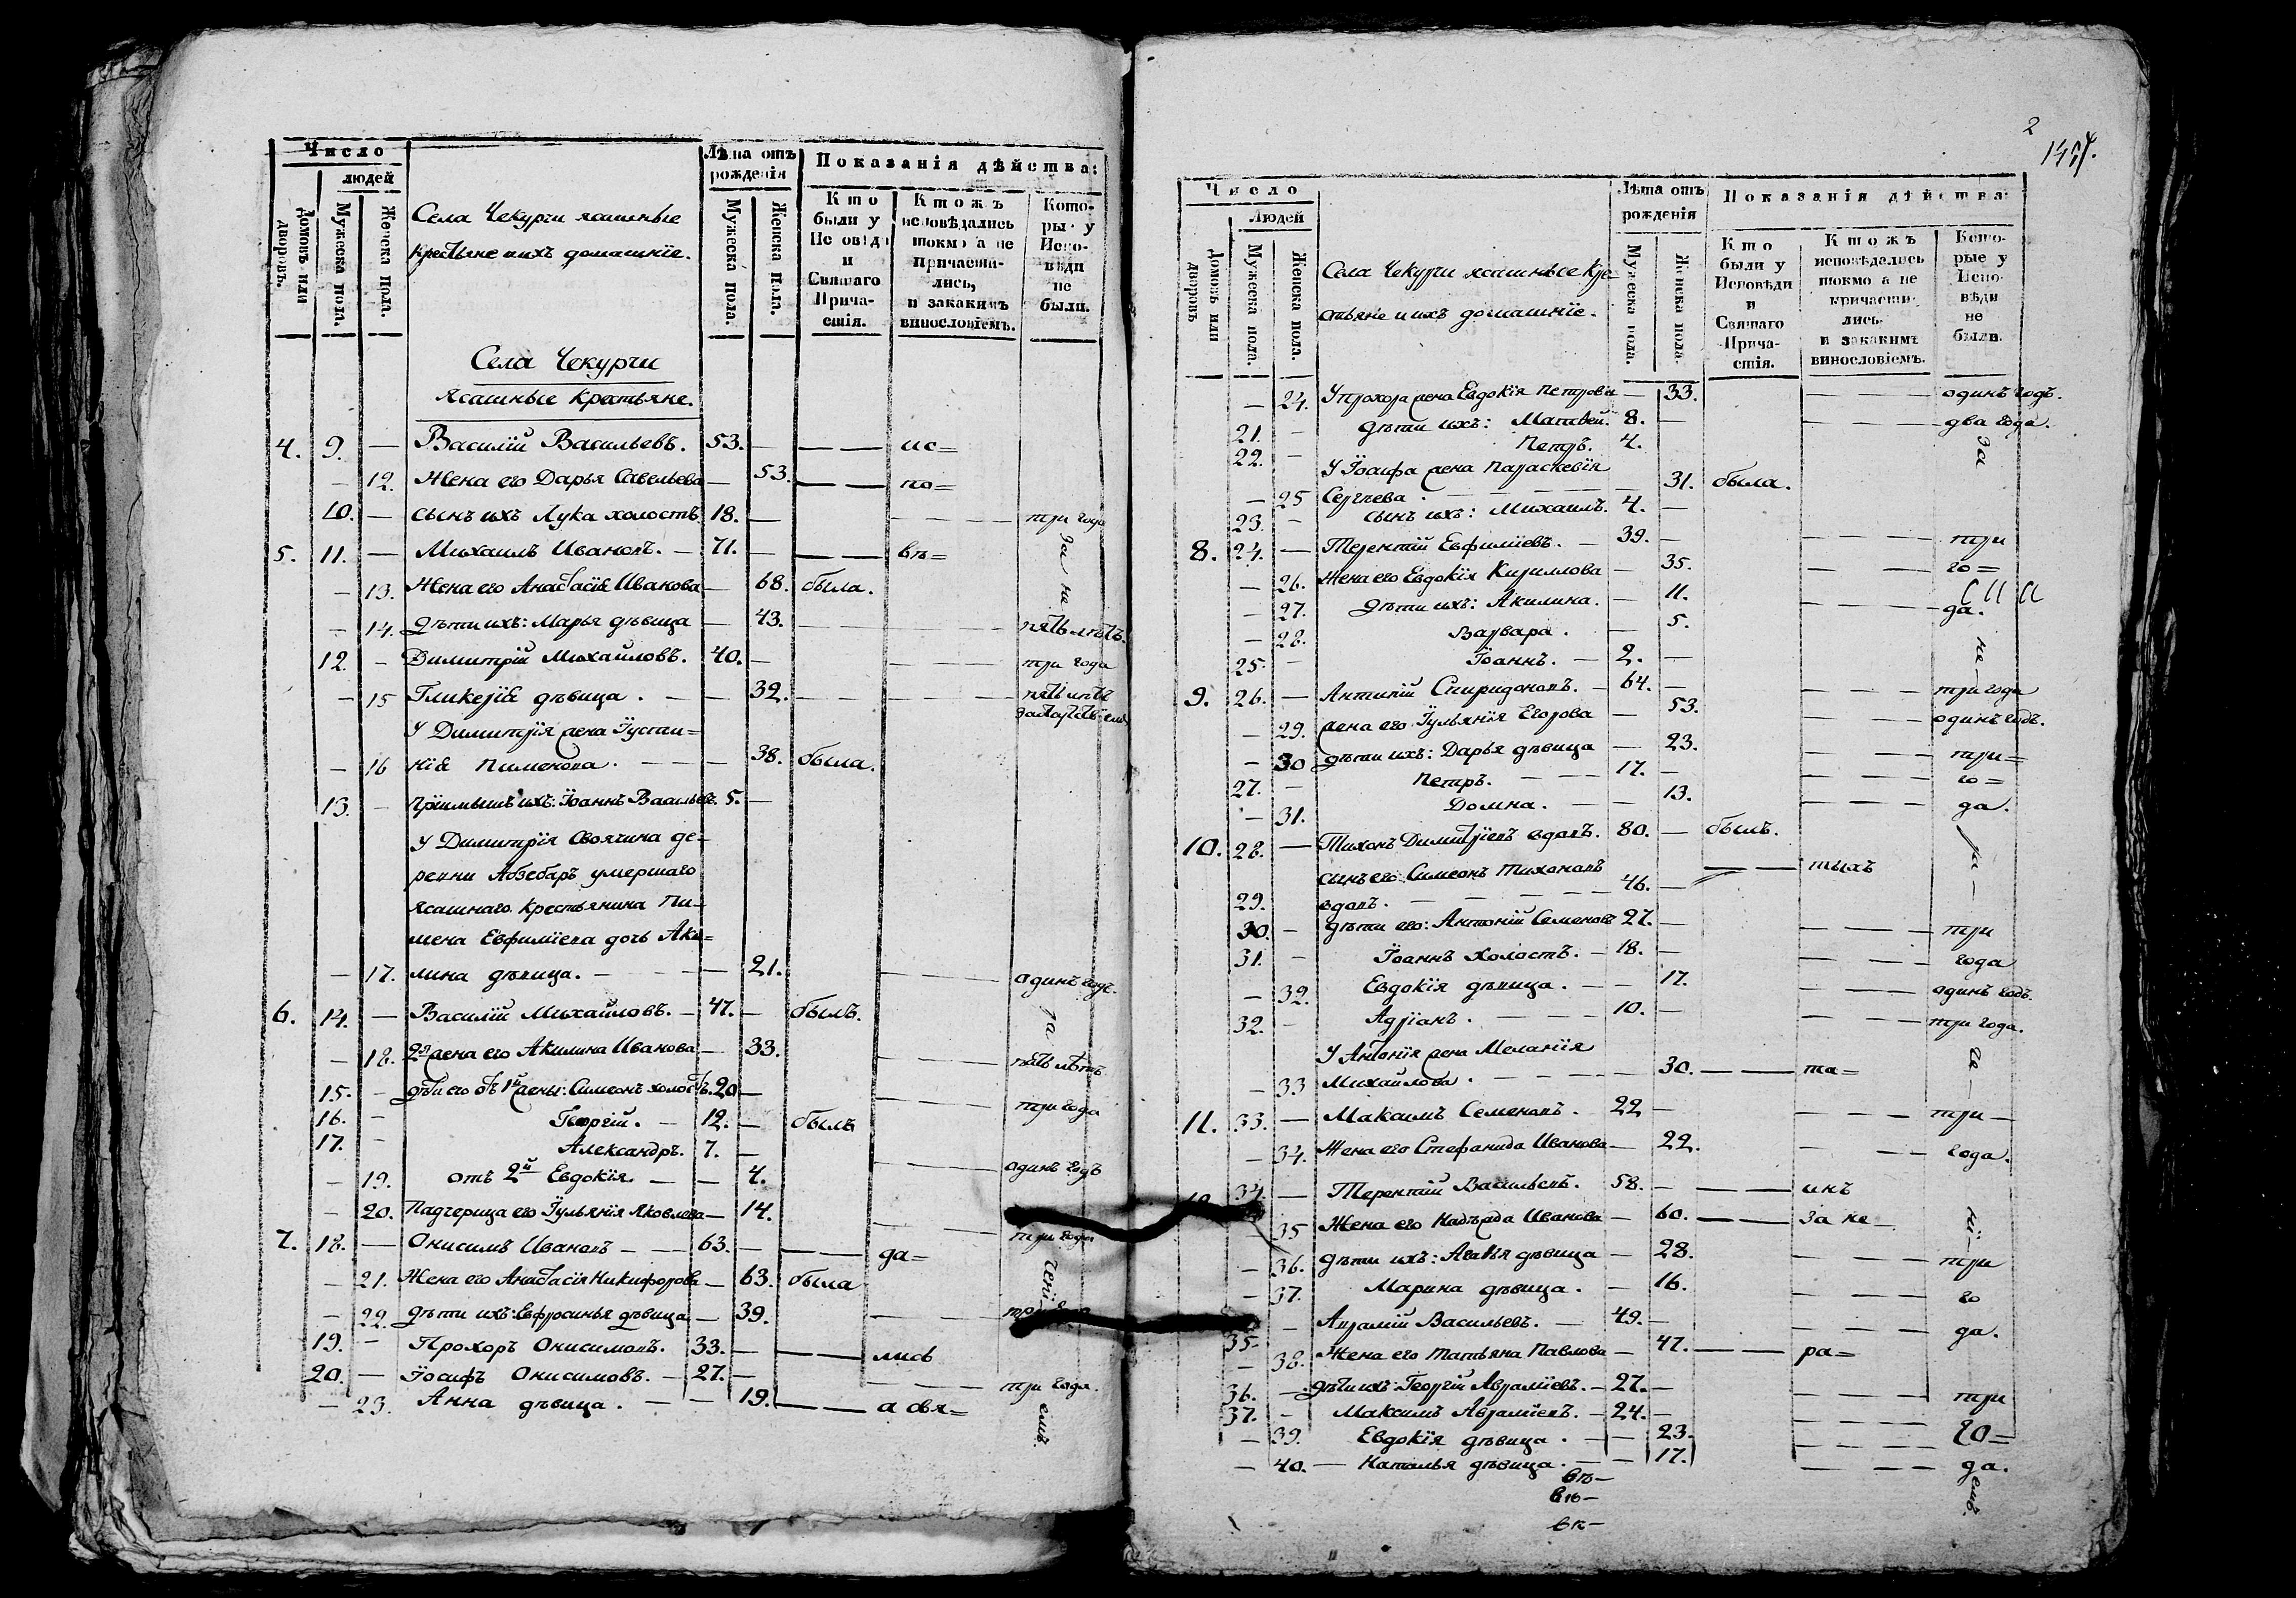 Число
людей
Домовъ или дворовъ.
Мужеска пола.
Женска пола.
Села Чекурчи ясашные
крестьяне и ихъ домашнїе.
Лѣта отъ рожденїя
Мужеска пола.
Женска пола.
Показанїя дѣйства:
Кто были у Исповѣди и Святаго Причастїя.
Ктожъ исповѣдались токмо а не причастились, и закакимъ винословїемъ.
Которые у Исповѣди не были.
Села Чекурчи
Ясашные Крестьяне.
4. 9. — Василїй Васильевъ. 53. — — — ис=
— 12. Жена его Дарья Савельева — 53. — — по=
10. — сынъ ихъ Лука холостъ 18. — — — — три года
5. 11. — Михаилъ Ивановъ. — 71. — — — вѣ=
за не
— 13. Жена его Анастасїя Иванова — 68. была.
— 14. дѣти ихъ: Марья дѣвица — 43. — — — — пять лѣтъ.
12. — Димитрїй Михайловъ. 40. — — — — три года
— 15 Гликерїя дѣвица. — — 32. — — — — пять лѣтъ
У Димитрїя жена Їусти=
— 16 нїя Пименова. — — — 38. была.
13. — прїимышъ ихъ: Їоаннъ Васильевъ 5. —
У Димитрїя своячина де=
ревни Абзебаръ умершаго
ясашнаго крестьянина Пи=
мена Евфимїева дочь Аки=
— 17. лина дѣвица. — — — 21. — — — одинъ годъ.
6. 14. — Василїй Михайловъ. — 47. — былъ.
— 18. 2я жена его Акилина Иванова — 33. — — — пять лѣтъ
15. — дѣти его отъ 1й жены: Симеонъ холостъ. 20 — — — — три года
16. — Георгїй. — 12. — былъ
17. — Александръ. 7. —
— 19. отъ 2й Евдокїя. — — 4. — — — одинъ годъ
— 20. Падчерица его Їульянїя Яковлева — 14. — — три года
7. 18. — Онисимъ Ивановъ — — 63. — — — да=
— 21. Жена его Анастасїя Никифорова — 63. была
— 22. дѣти ихъ: Евфросинья дѣвица — 39. — — —
19. — Прохоръ Онисимовъ. 33. — — — лись
20. — Їосифъ Онисимовъ. — 27. — — — — три года.
— 23. Анна дѣвица. — — 19. — — а свя=
емъ.
2
Число
Людей
Домовъ или дворовъ
Мужеска пола.
Женска пола.
Села Чекурчи ясашные кре=
стьяне и ихъ домашнїе.
Лѣта отъ рожденїя
Мужеска пола.
Женска пола.
Показанїя дѣйства:
Кто были у Исповѣди и Святаго Причастїя.
Ктожъ исповѣдались токмо а не причастились. и закакимъ винословїемъ.
Которые у Исповѣди не были.
— 24. У Прохора жена Евдокїя Петрова — 33. — — — одинъ годъ.
21. — дѣти ихъ: Матвей. 8. — — — — два года.
22. — Петръ. 4.
за
У Їосифа жена Параскевїя
— 25 Сергѣева. — — — — 31. была.
23. — сынъ ихъ: Михаилъ. 4. —
8. 24. — Терентїй Евфимїевъ. — 39. — — — — три
— 26. Жена его Евдокїя Кирилова — 35. — — го=
— 27. дѣти ихъ: Акилина. — 11. — — — да.
— 28. Варвара. — 5.
не
25. — Їоаннъ. — 2. —
9. 26. — Антипїй Спиридоновъ. — 64. — — — — три года
— 29. жена его Їульянїя Егорова — 53. — — одинъ годъ.
— 30 дѣти ихъ: Дарья дѣвица — 23. — — три=
27. — Петръ. — — — 17. — — — — го=
— 31. Домна. — — 13. — — — да.
10. 28. — Тихонъ Димитрїевъ вдовъ. 80. — былъ.
сынъ его Симеонъ Тихоновъ — — тыхъ
29. вдовъ. — — — — 46. —
30. — дѣти его: Антонїй Семеновъ 27. — — — — три
31. — Їоаннъ холостъ. — 18. — — — — года
— 32. Евдокїя дѣвица. — — 17. — — — одинъ годъ.
32. — Адрїанъ. — — — 10. — — — — три года.
У Антонїя жена Меланїя
— 33 Михайлова. — — — — 30. — — та=
11. 33. — Максимъ Семеновъ. 22 — — — — три —
— 34. Жена его Стефанида Иванова — 22. — — — года.
34. — Терентїй Васильевъ. 58. — — — инъ
35 Жена его Надѣжда Иванова — 60. — — за не —
— 36. дѣти ихъ: Агафья дѣвица — 28. — — — три
— 37. Марина дѣвица. — 16. — — — го
35 — Аврамїй Васильевъ. — 49. — — — — да.
— 38. Жена его Татьяна Павлова — 47. — — ра=
36. — дѣти ихъ: Георгїй Аврамїевъ. — 27. — — — — три
37. — Максимъ Аврамїевъ. — 24. —
— 39. Евдокїя дѣвица. — — 23. — — — го=
— 40. — Наталья дѣвица. — — 17. — — — да.
емъ.
вѣ—
вѣ—
вѣ—